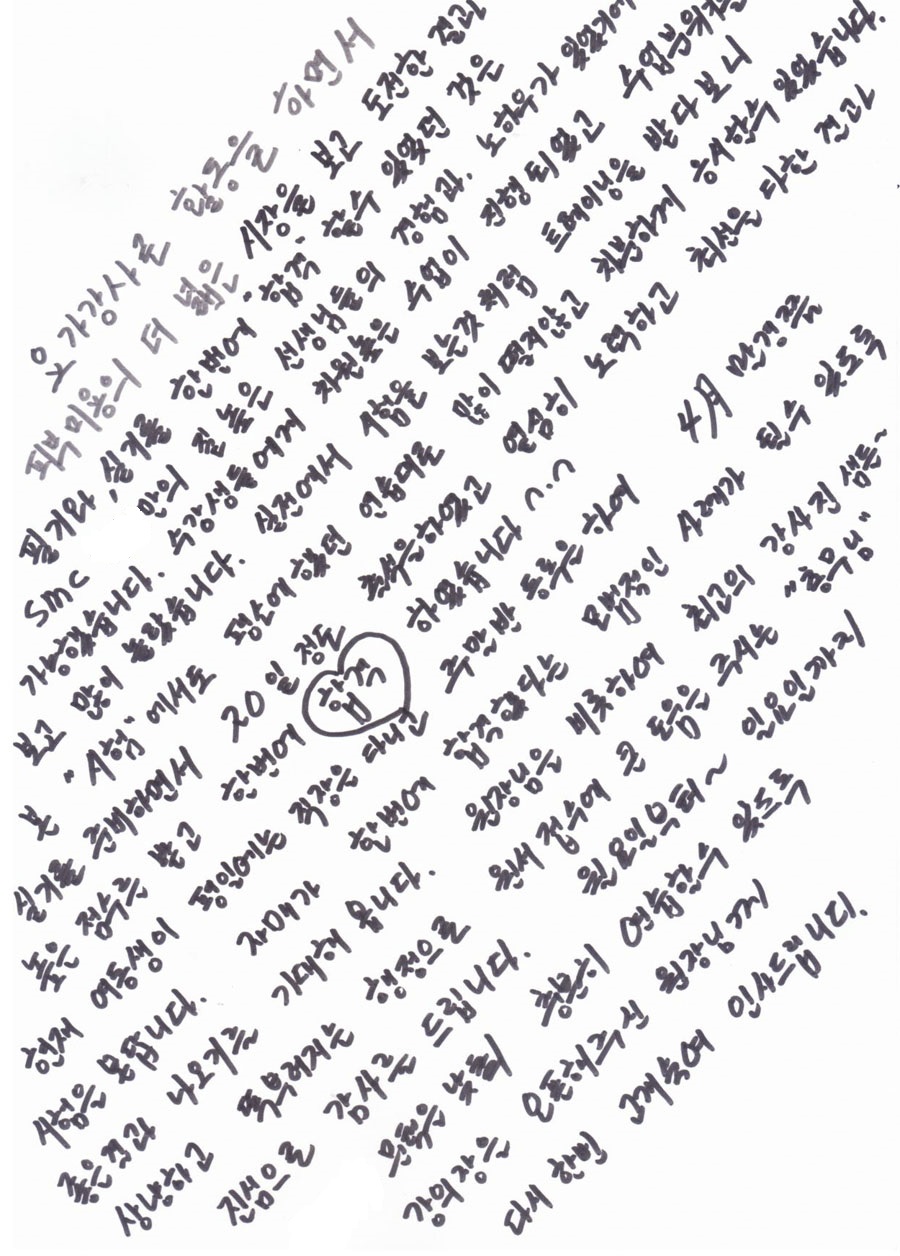 웃가강사로 활동을 하면서
피부미용의 더 넓은 시장을 보고 도전한 결과
필기와, 실기를 한번에 "합격" 할수 있었던 것은
SMC 만의 질 높은 선생님들의 경험과. 노하우가 있었기에
가능했습니다. 수강생들에게 차원높은 수업이 진행 되었고 수업분위기는
보고 많이 놀랐습니다. 실전에서 시험을 보는것 처럼 트레이닝을 받다 보니
본 "시험"에서도 평소에 했던 연습대로 많이 떨지않고 차분하게 응시할수 있었습니다.
실기를 준비하면서 20일 정도 출석을하였고 열심히 노력하고 최선을 다한 결과
높은 점수를 받고 한번에 합격 하였습니다 ^.^
현재 여동생이 평일에는 직장을 다니고 주말반 등록을 하여 4月 만경쯤
시험을 봅니다. 자매가 한번에 합격했다는 모범적인 사례가 될수 있도록
좋은결과 나오기를 기대해 봅니다. 원장님을 비롯하여 최고의 강사진 샘들~
상냥하고 똑부러지는 행정으로 원서 접수에 큰 도움을 주시는 "총무님"
진심으로 감사를 드립니다. 월요일부터~ 일요일까지
오픈을 낮춰 충분히 연습할수 있도록
강의장을 오픈해주신 원장님께
다시 한번 고개숙여 인사드립니다.